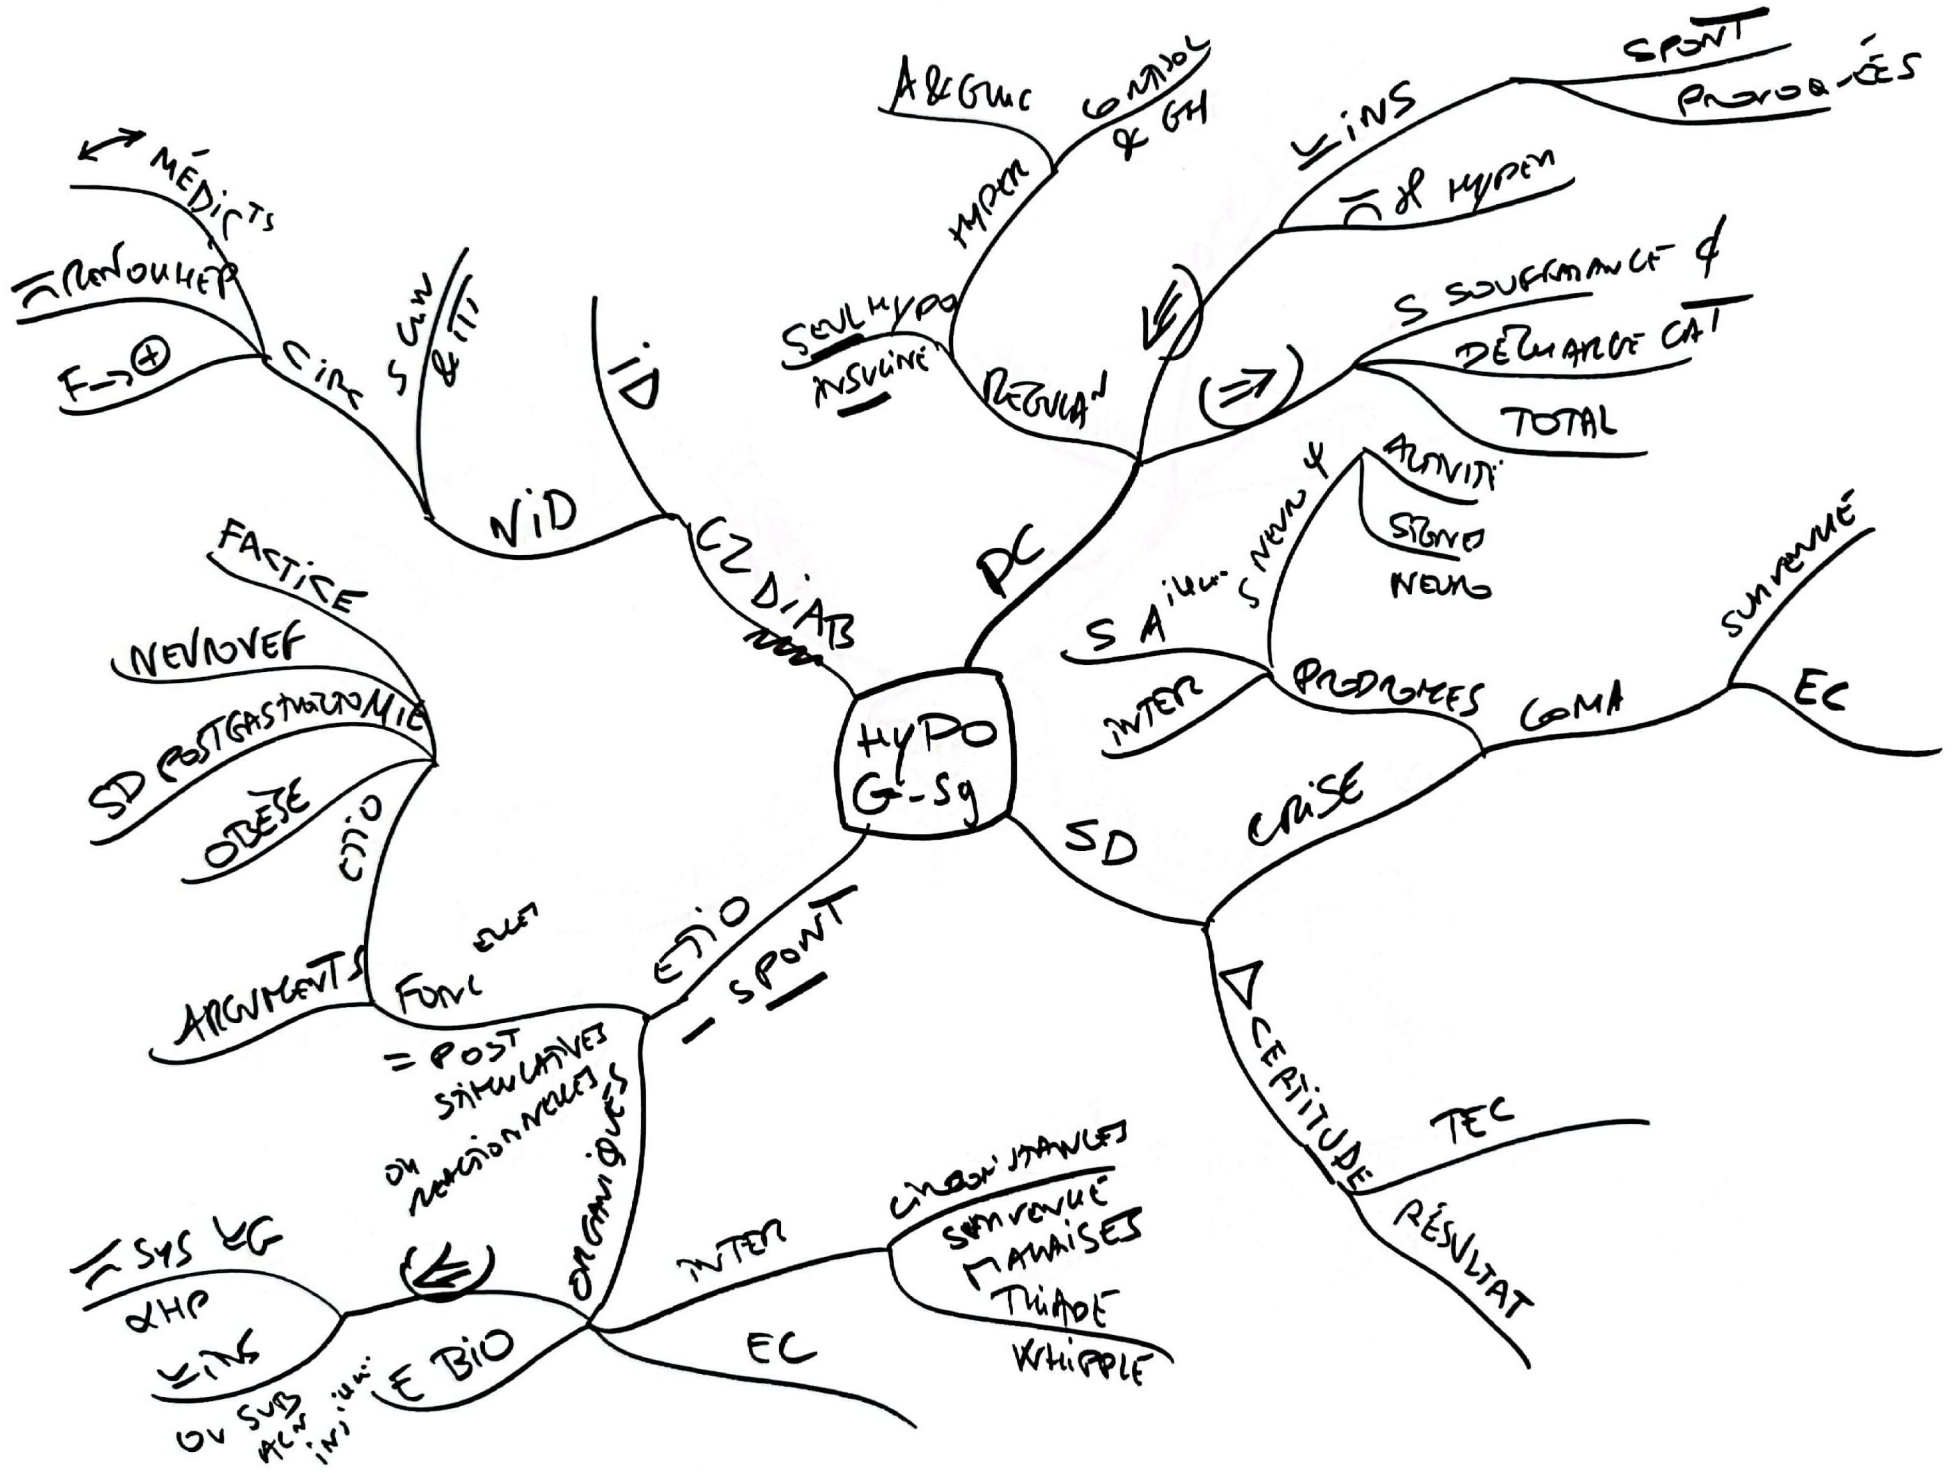 HYPO
G-Sg
PC
REGULAN
HYPER
A&GLUC
CORTISOL
& GH
SEUL HYPO
INSULINE
INS
SPONT
PROVOQ-ÉES
HYPER
S SOUFFRANCE
DÉCHARGE CAT
TOTAL
SD
CRISE
PRODROMES
S NEURO Ψ
ACTIVITÉ
SIGNES
NEURO
S A
INTER
COMA
SURVENUE
EC
CERTITUDE
TEC
RÉSULTAT
ETIO
- SPONT
FONC
ELLES
= POST
STIMULATIVES
OU
REACTIONNELLES
ARGUMENTS
ETIO
FACTICE
NEUROVEG
SD POSTGASTRECTOMIE
OBÈSE
ORGANIQUES
INTER
CIRCONSTANCES
SURVENUE
MALAISES
TRIADE
WHIPPLE
EC
E BIO
SYS
G
HP
INS
OU SUB
INS
CZ DIAB
ID
NID
S CLIN
& ///
CIRC
MÉDICTS
RENOUHEP
F→⊕